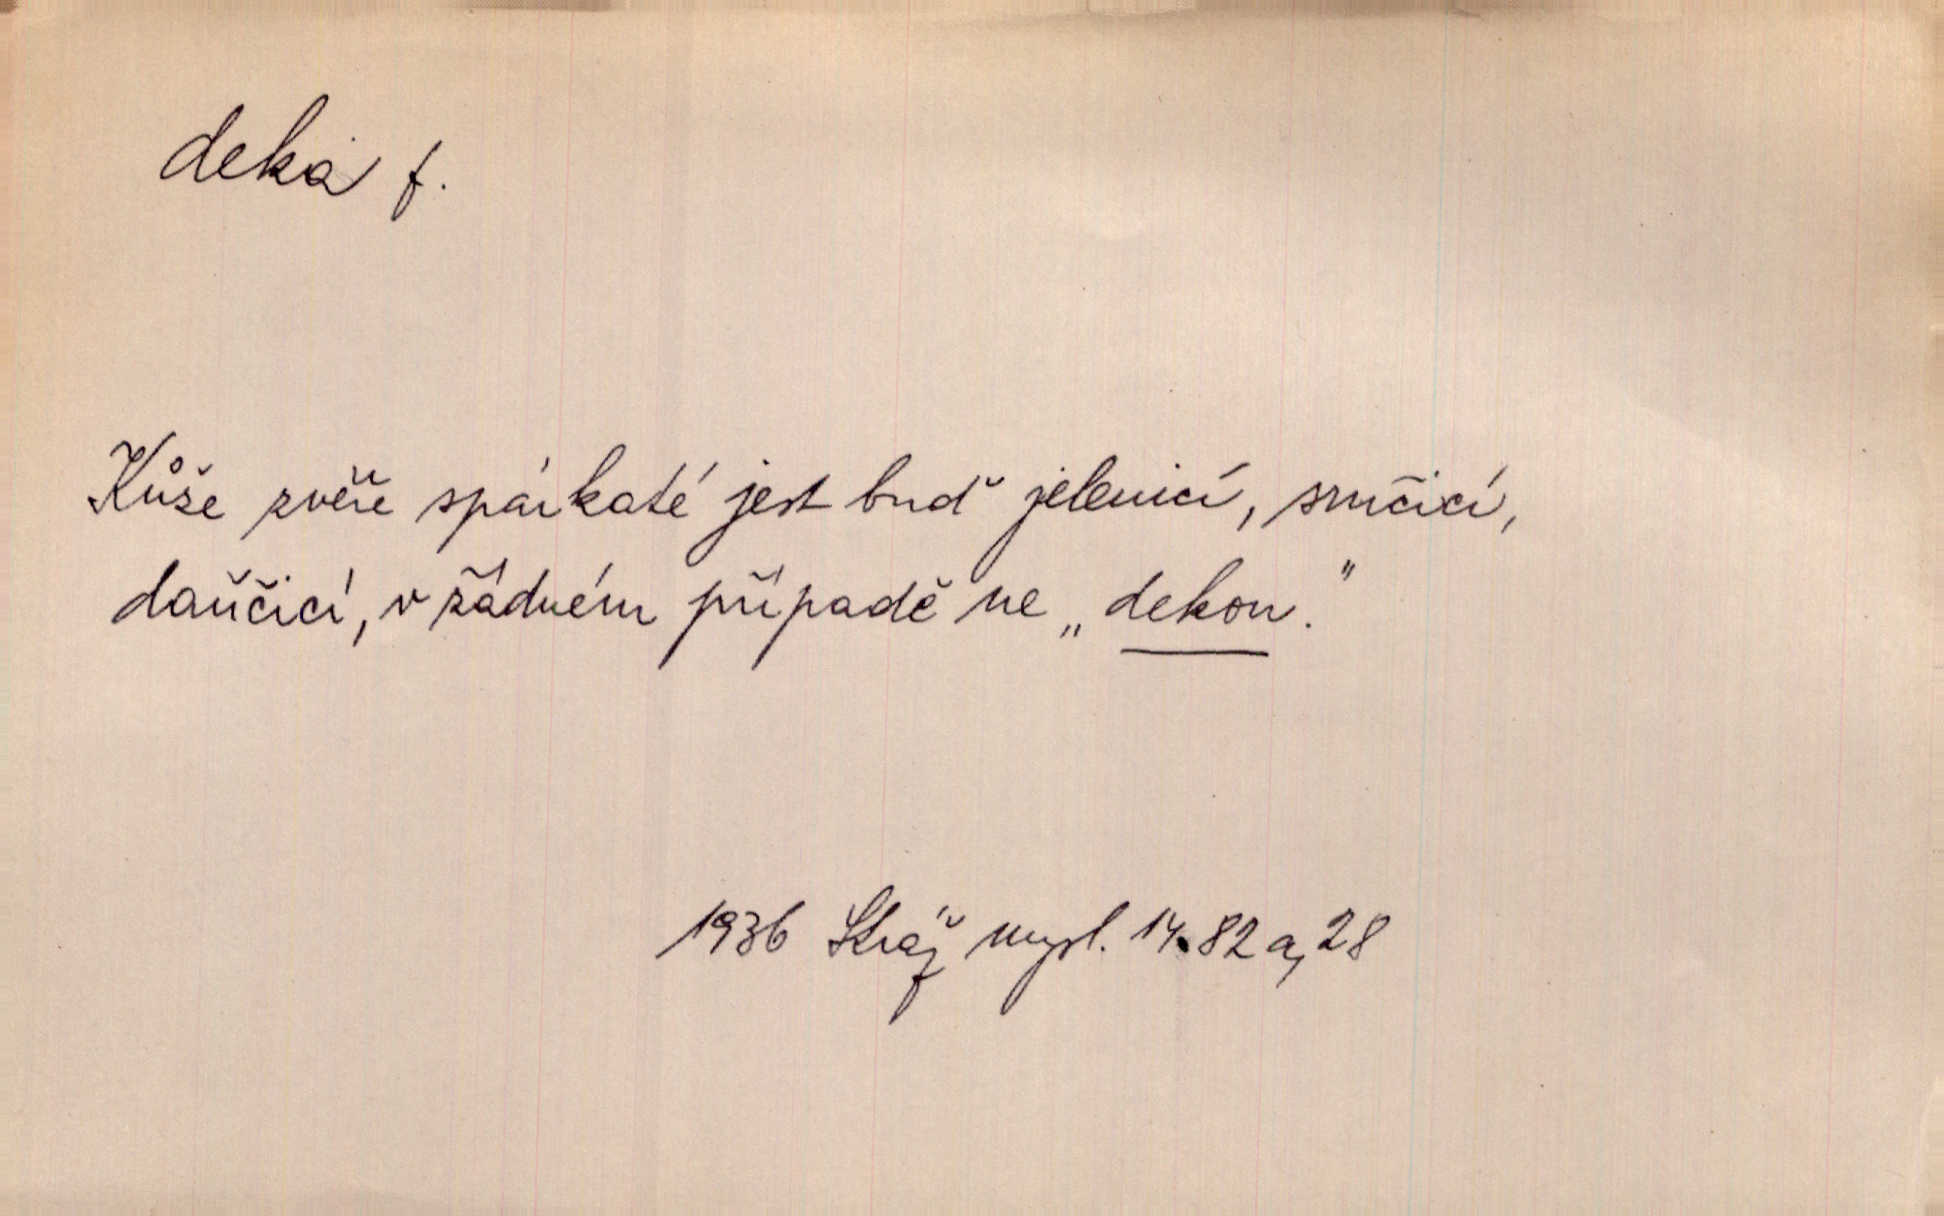 deka f.
Kůže zvěře spárkaté jest buď jelenicí, srnčicí,
daňčicí, v žádném případě ne „dekou."
1936 Stráž mysl. 14.82a,28